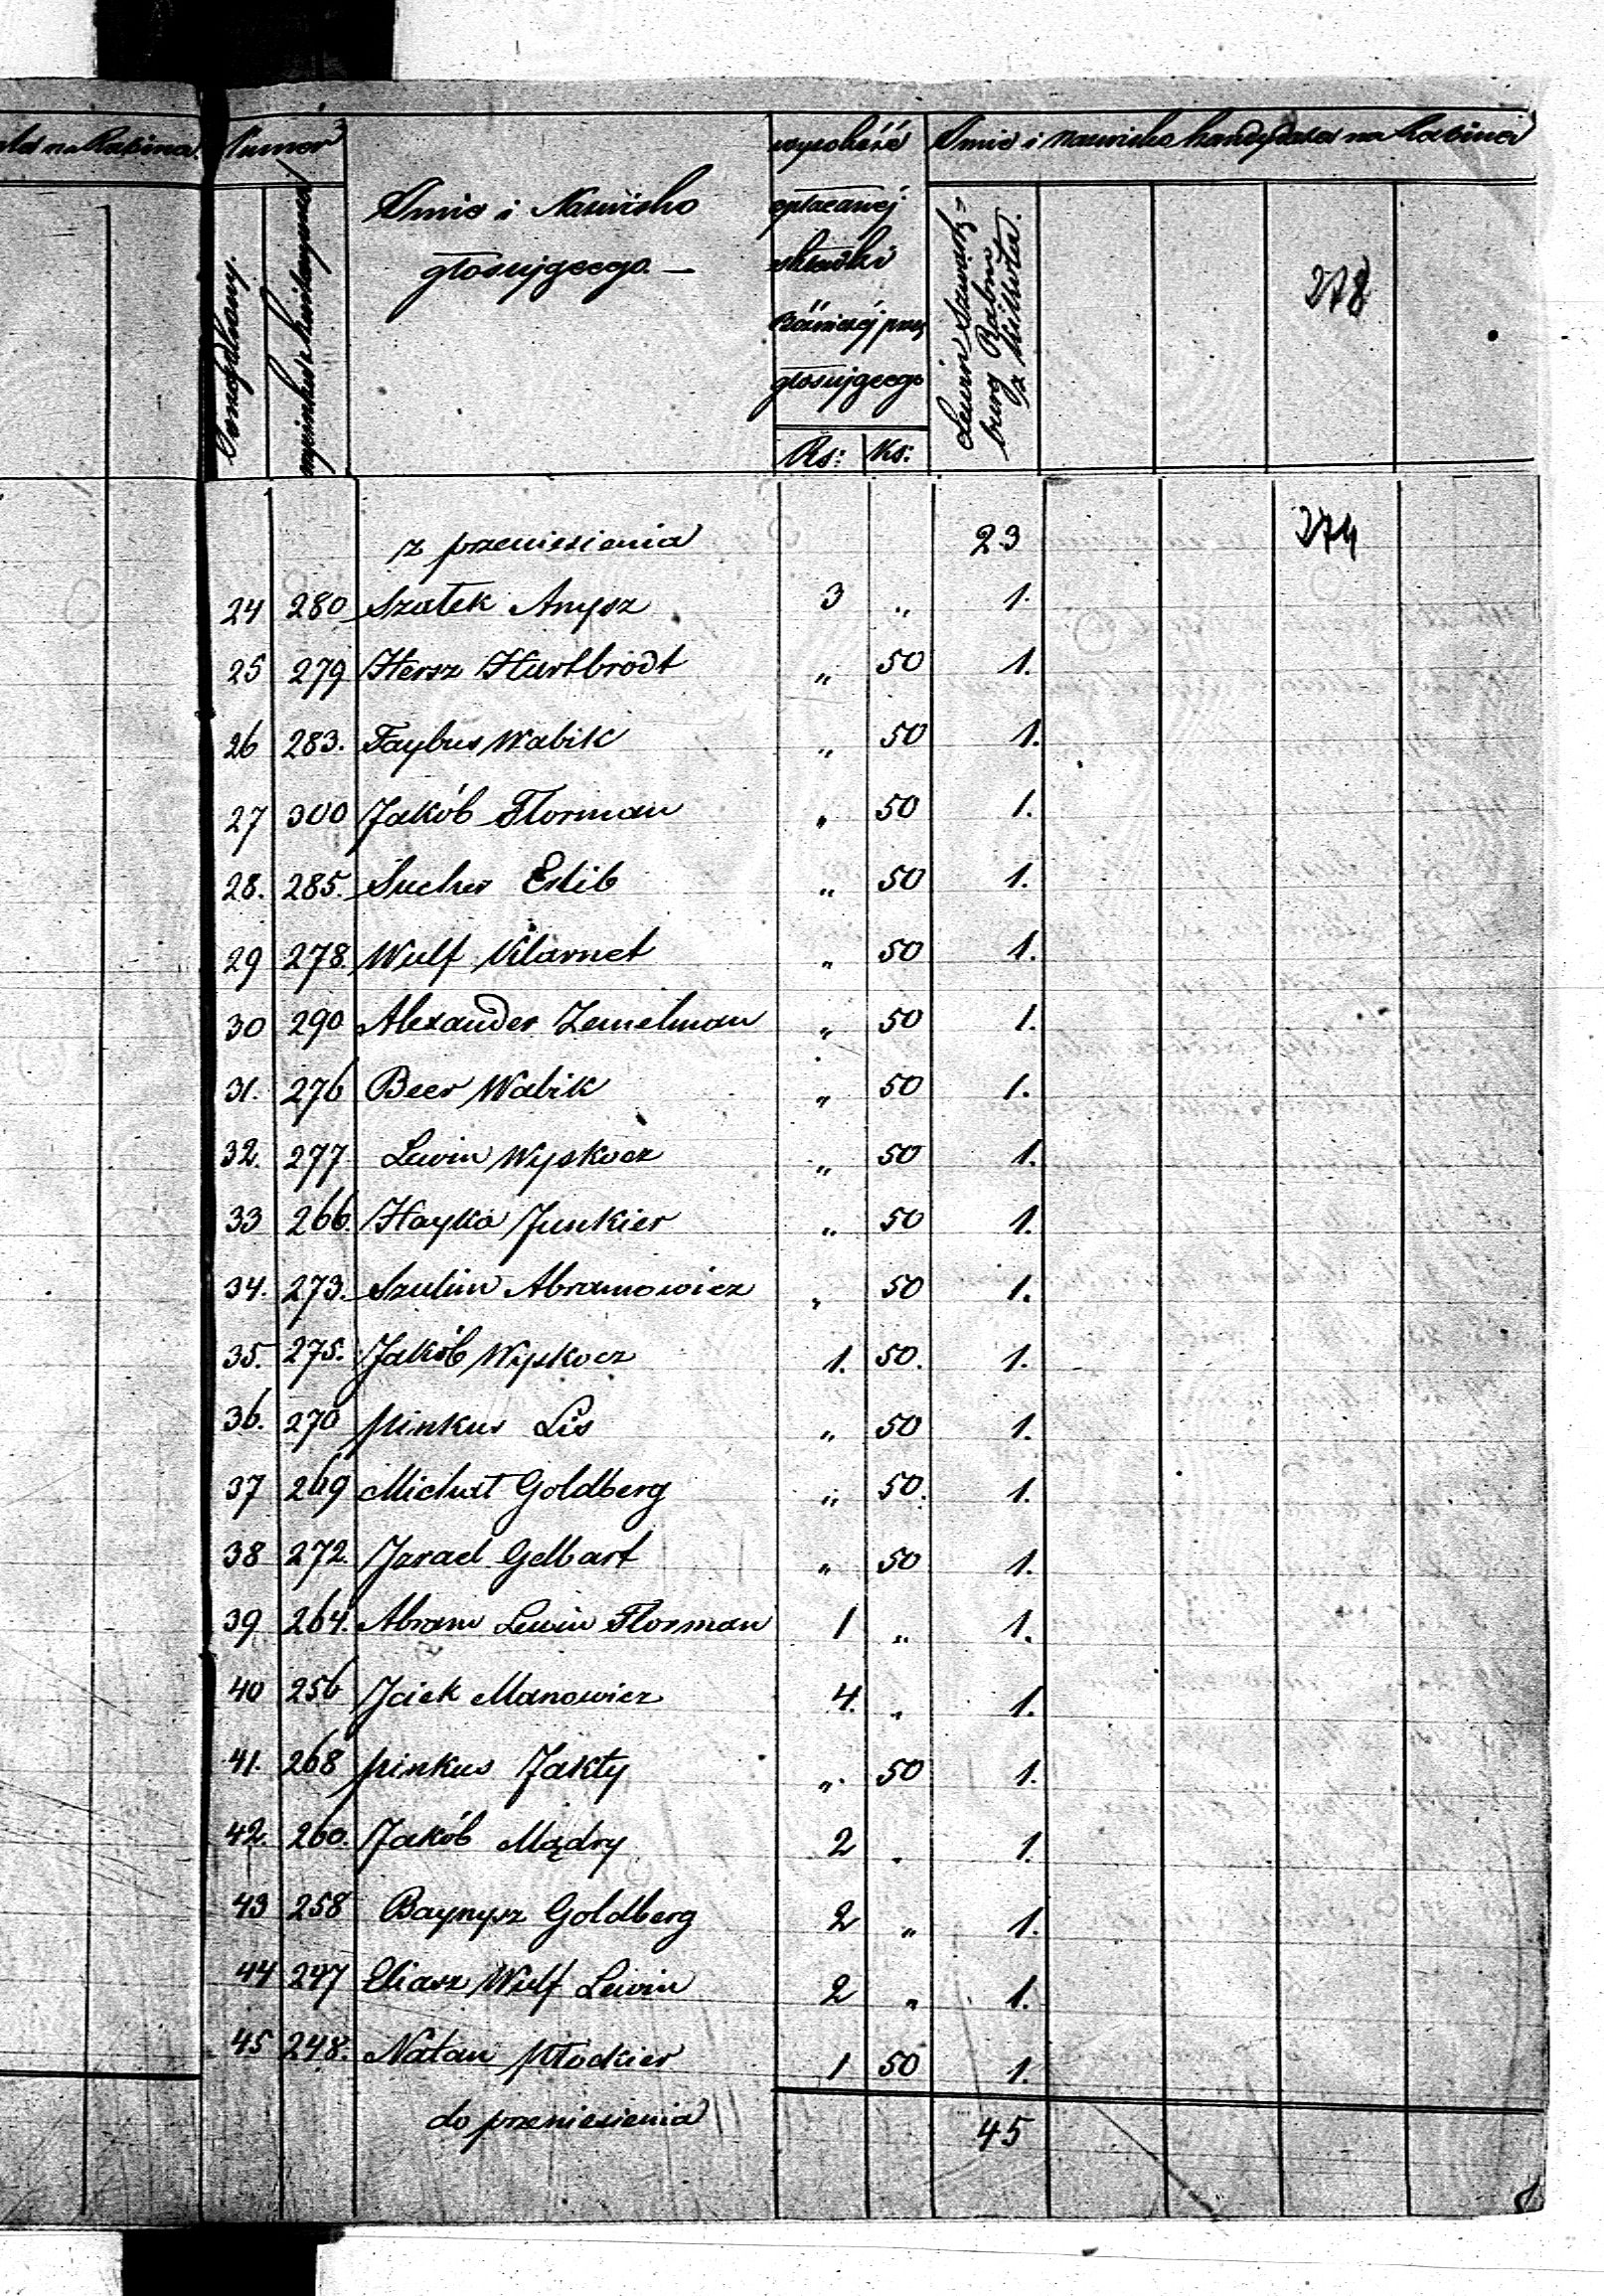 na Rabina
Numer
Porządkowy.
Imie i Nazwisko
głosującego —
wysokość
opłacanej
składki
głosującego
Rs: Ks:
Imie i nazwisko kandydata na Rabina
Lewin
burg Rabin
z
278
z przeniesienia 23 274
24 280 Szatek Anysz 3 „ 1.
25 279 Hersz Hartbrodt „ 50 1.
26 283. Faybus Wabik „ 50 1.
27 300 Jakób Florman „ 50 1.
28. 285. Sucher „ 50 1.
29 278. Wulf „ 50 1.
30 290 Alexander Zemelman „ 50 1.
31. 276 Beer Wabik „ 50 1.
32. 277 Lewin Wyskocz „ 50 1.
33 266. Hayka Junkier „ 50 1.
34. 273. Szulim Abramowicz „ 50 1.
35. 275. Jakób Wyskocz 1. 50. 1.
36. 270 Pinkus Lis „ 50 1.
37 269 Michał Goldberg „ 50. 1.
38 272. Izrael Gelbart „ 50 1.
39 264. Abram Lewin Florman 1 „ 1.
40 256 Icek Manowicz 4. „ 1.
41. 268 Pinkus Zakty „ 50 1.
42. 260. Jakób Mądry 2 „ 1.
43 258 Baynysz Goldberg 2 „ 1.
44 247 Eliasz Wulf Lewin 2 „ 1.
45 248. Natan Płockier 1 50 1.
do przeniesienia 45